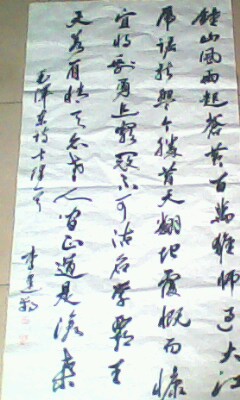 鐘山風雨起蒼黄百萬雄师过大江
虎踞龙盘今勝昔天翻地覆慨而慷
宜将剩勇追窮寇不可沽名学霸王
天若有情天亦老人间正道是沧桑
毛泽东诗七律
李